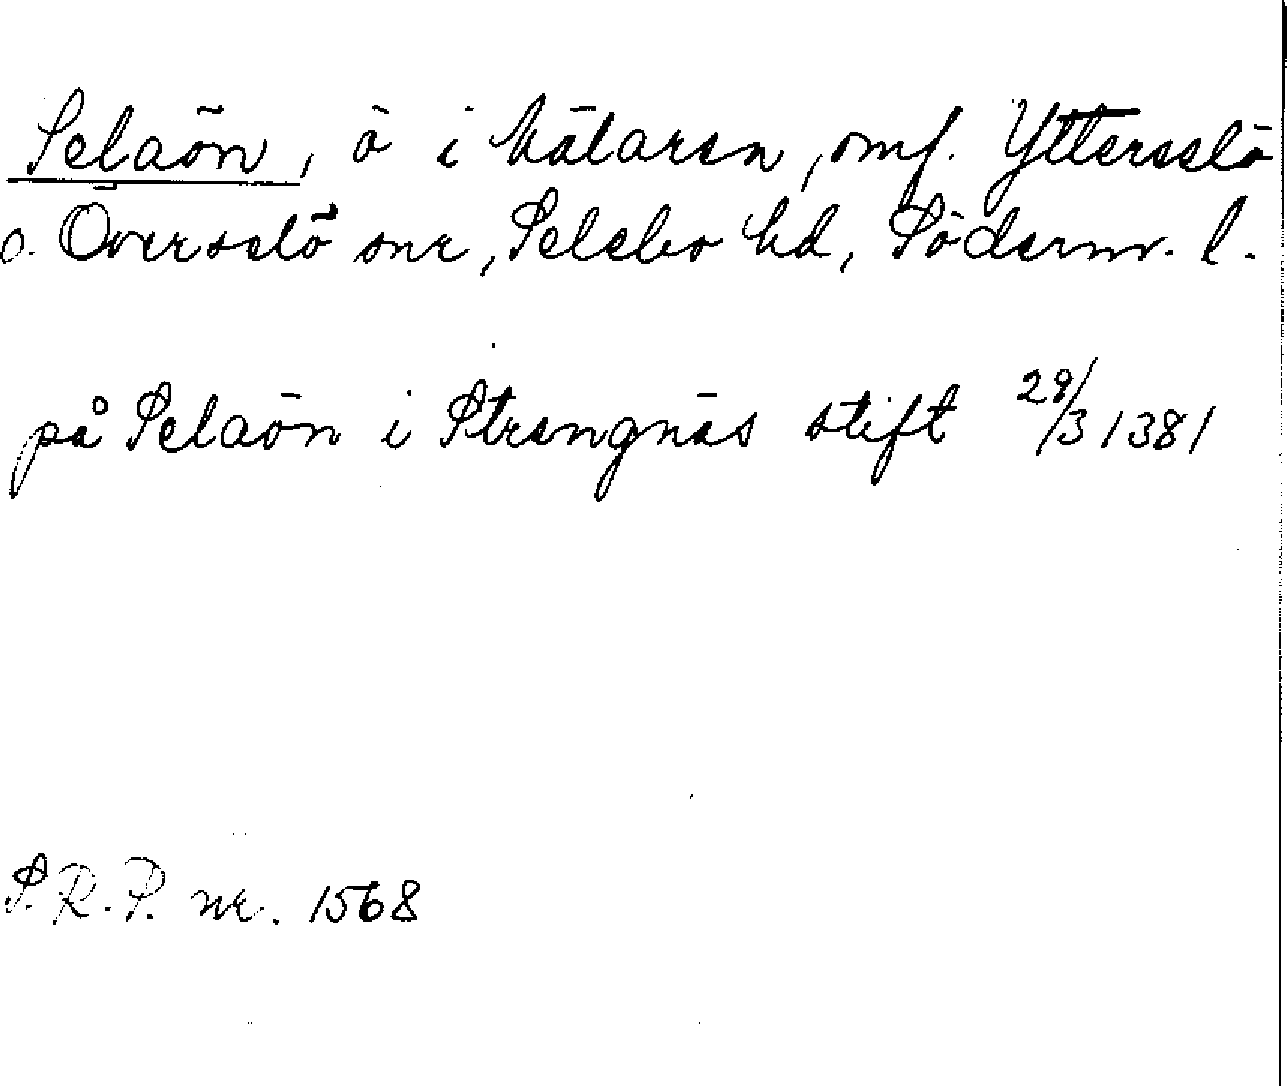 Selaön, ö i Mälaren, omf. Ytterselö
o. Överselö snr, Selebo hd, Söderm. l.
på Selaön i Strengnäs stift 29/3 1381
S.R.P. nr. 1568